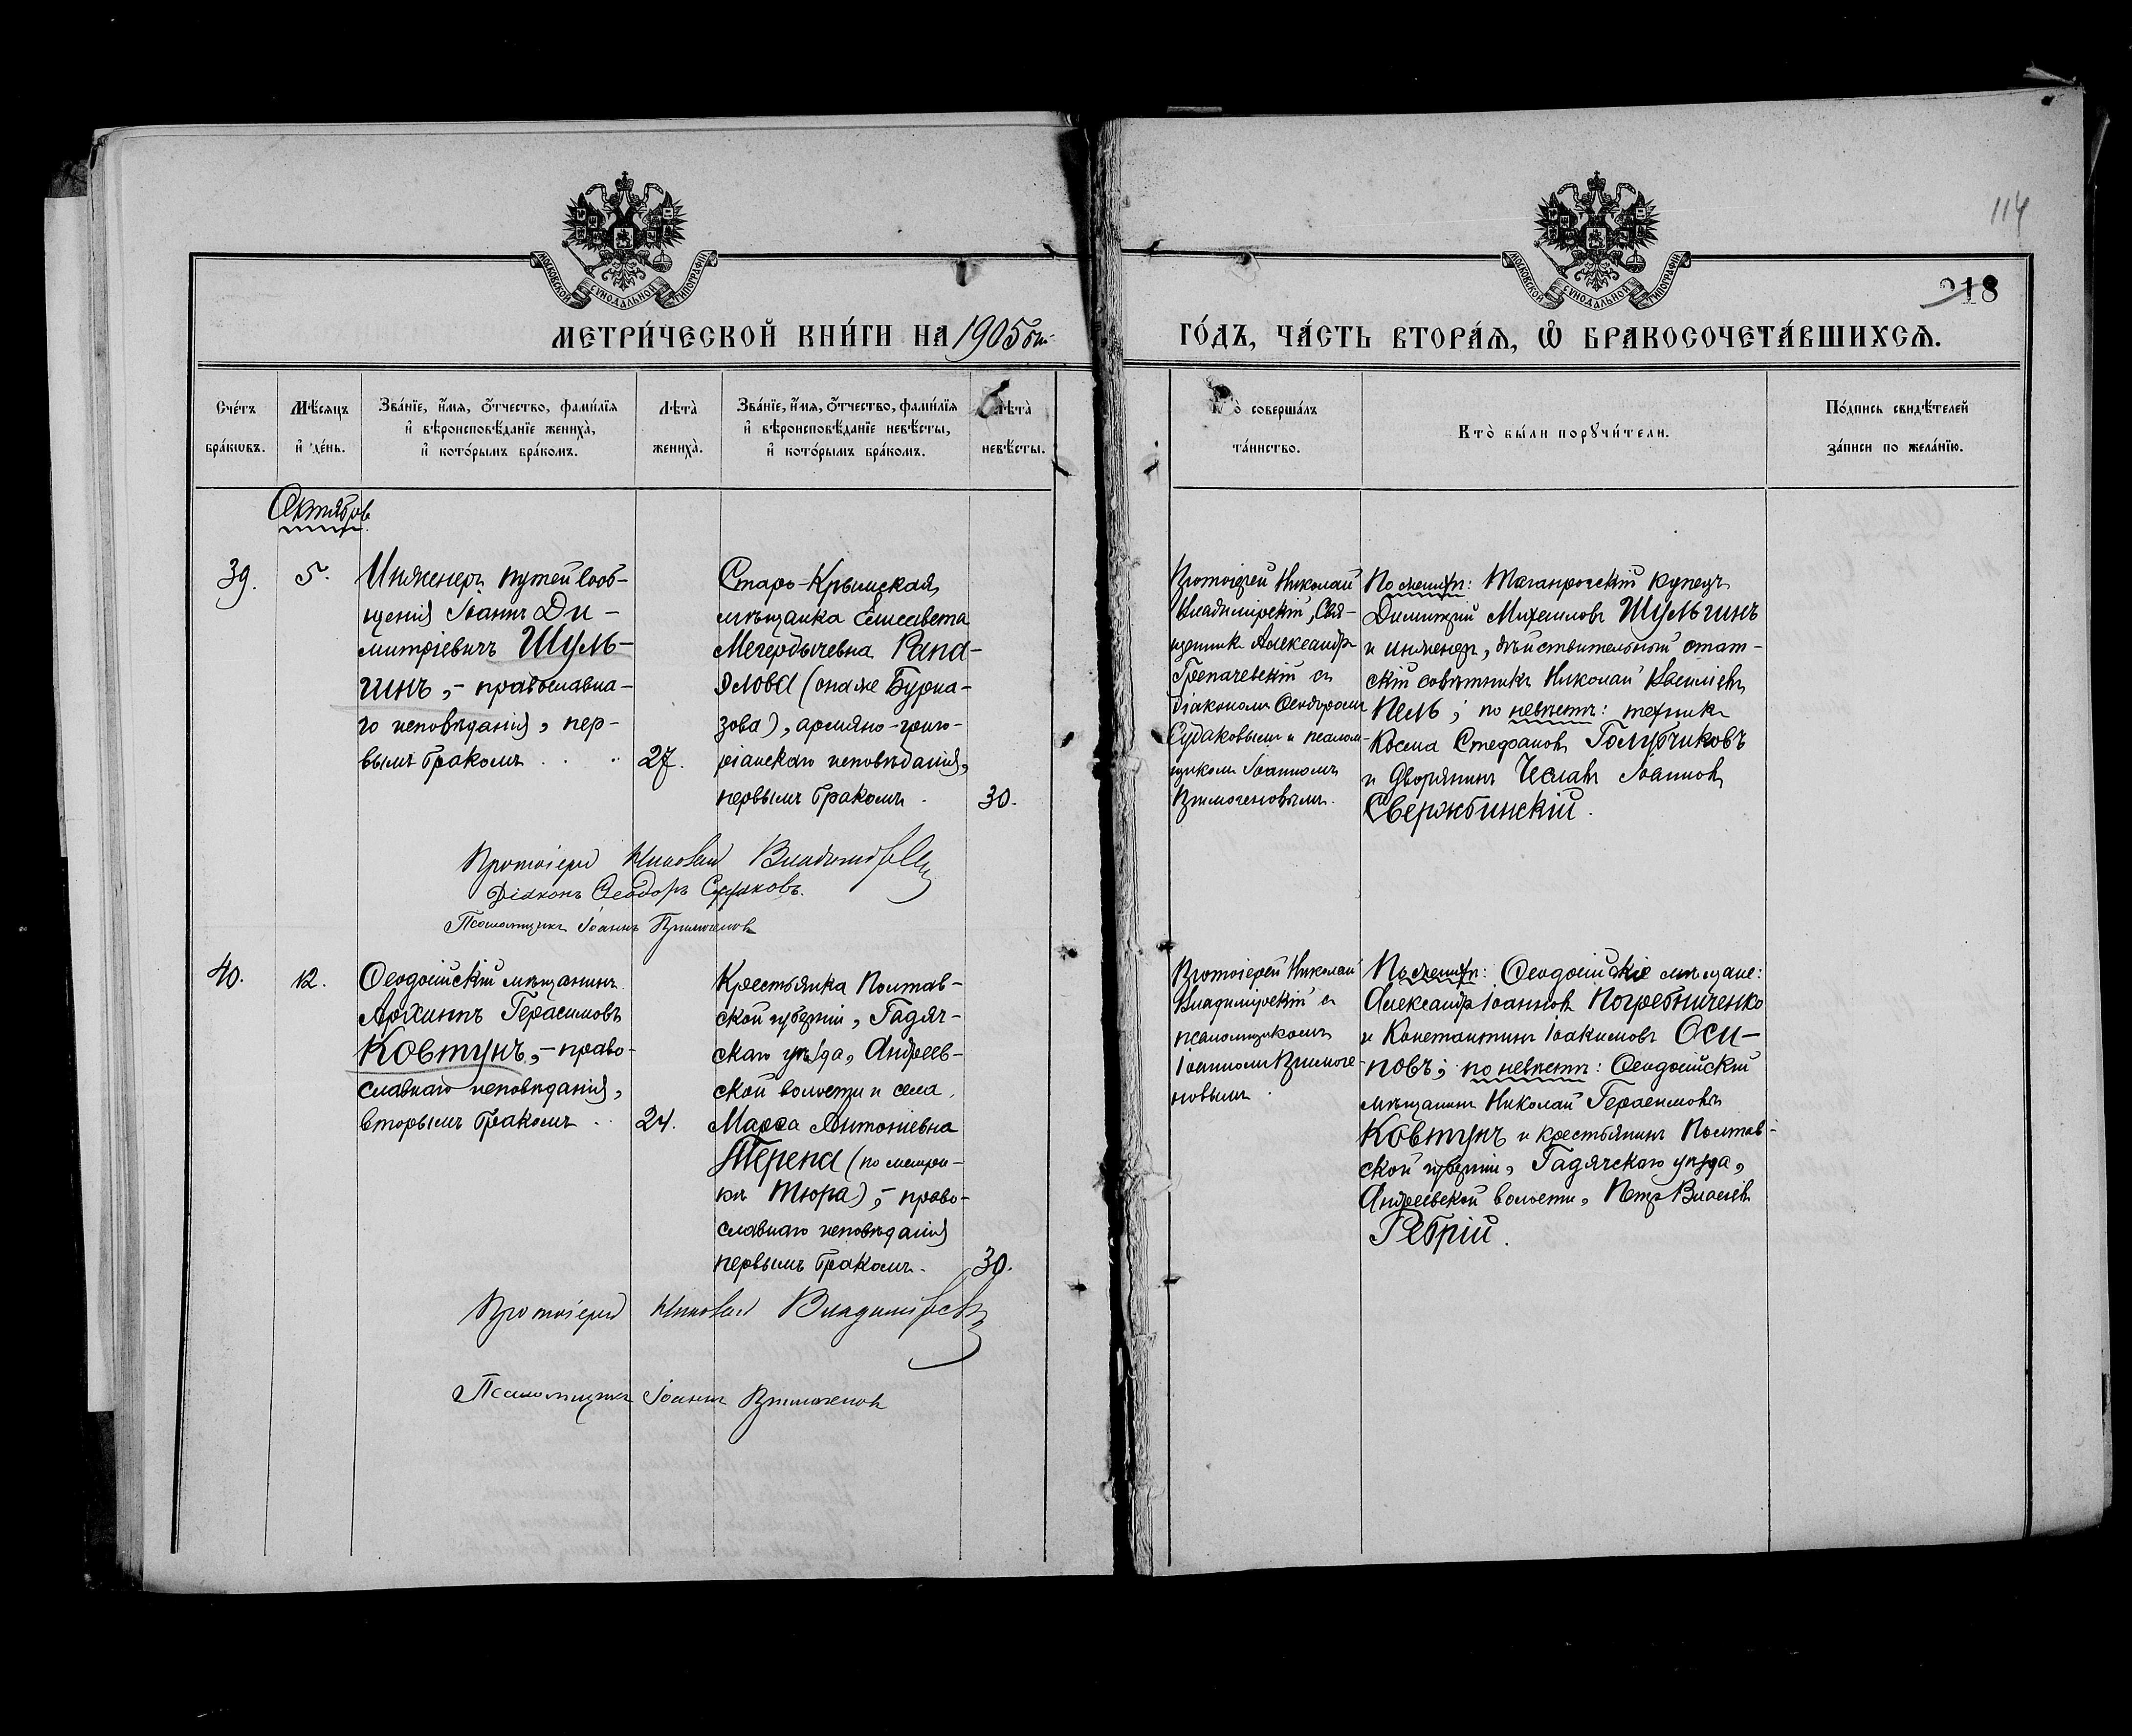 114
218
МОСКОВСКОЙ СѴНОДАЛЬНОЙ ТИПОГРАФІИ
МОСКОВСКОЙ СѴНОДАЛЬНОЙ ТИПОГРАФІИ
МЕТРИ́ЧЕСКОЙ КНИ́ГИ НА 1905
ГО́ДЪ, ЧА́СТЬ ВТОРА́Я, Ѽ БРАКОСОЧЕТА́ВШИХСѦ.
Сче́тъ
бра́кωвъ.
Мѣ́сѧцъ
и҆ де́нь.
Зва́нїе, и҆́мя, ѻ҆́тчество, фами́лїя
и҆ вѣроисповѣ́данїе жениха̀,
и҆ кото́рымъ бра́комъ.
Лѣта̀
жениха̀.
Зва́нїе, и҆́мя, ѻ҆́тчество, фами́лїя
и҆ вѣроисповѣ́данїе невѣ́сты,
и҆ кото́рымъ бра́комъ.
Лѣта̀
невѣ́сты.
Кто̀ соверша́лъ
та́инство.
Кто̀ бы́ли порꙋчи́тели.
По́дпись свидѣ́телей
за́писи по жела́нїю.
Октябрь
39.
5.
Инженеръ путей сооб-
щенія Іоаннъ Ди-
митріевичъ Шуль-
гинъ, - православна-
го исповѣданія, пер-
вымъ бракомъ . . .
27.
Старо-Крымская
мѣщанка Елисавета
Мегердычевна Папа-
Яловa (она же Бурна-
зова), армяно-григо-
ріанскаго исповѣданія,
первымъ бракомъ .
30.
Протоіерей Николай
Владимірскій, Свя-
щенникъ Александръ
Грепачевскій съ
діакономъ Ѳеодоромъ
Судаковымъ и псалом-
щикомъ Іоанномъ
Примогеновымъ.
По женихѣ: Таганрогскій купецъ
Димитрій Михаиловъ Шульгинъ
и инженеръ, дѣйствительный стат-
скій совѣтникъ Николай Василіевъ
Пель; по невѣстѣ: техникъ
Косма Стефановъ Голубчиковъ
и дворянинъ Чеславъ Іоанновъ
Свержбинскій.
Протоіерей Николай Владимірскій
Діаконъ Ѳеодоръ Судаковъ.
Псаломщикъ Іоаннъ Примогеновъ
40.
12.
Ѳеодосійскій мѣщанинъ
Архиппъ Герасимовъ
Ковтунъ, - право-
славнаго исповѣданія,
вторымъ бракомъ . .
24.
Крестьянка Полтав-
ской губерніи, Гадяч-
скаго уѣзда, Андреев-
ской волости и села,
Марѳа Антоніевна
Терепа (по метри-
кѣ Тюра), - право-
славнаго исповѣданія
первымъ бракомъ.
30.
Протоіерей Николай
Владимірскій съ
псаломщикомъ
Іоанномъ Примоге-
новымъ.
По женихѣ: Ѳеодосійскіе мѣщане:
Александръ Іоанновъ Погребниченко
и Константинъ Іоакимовъ Оси-
повъ; по невѣстѣ: Ѳеодосійскій
мѣщанинъ Николай Герасимовъ
Ковтунъ и крестьянинъ Полтав-
ской губерніи, Гадячскаго уѣзда,
Андреевской волости, Петръ Власіевъ
Ребрій.
Протоіерей Николай Владимірскій
Псаломщикъ Іоаннъ Примогеновъ